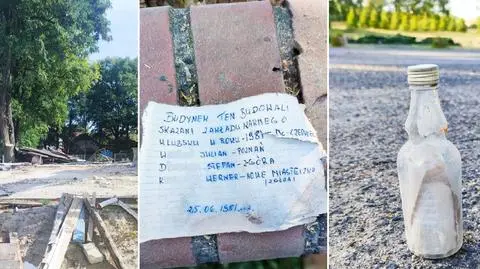 BUDYNEK TEN BUDOWALI
SKAZANI ZAKŁADU KARNEGO
W LUBSKU W ROKU - 1981 - MC - CZERWIEC
W JULIAN - POZNAŃ
D STEFAN - GÓRA
R WERNER - NOWE MIASTECZKO
25.06.1981